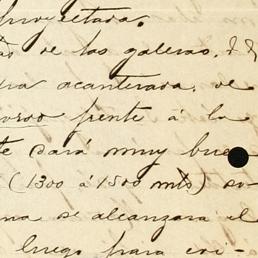 proyectada.
de las galeras, d d
acanterada, de
frente á la
te dará muy bue
(1300 á 1500 mts) so-
na se alcanzara el
luego para evi-